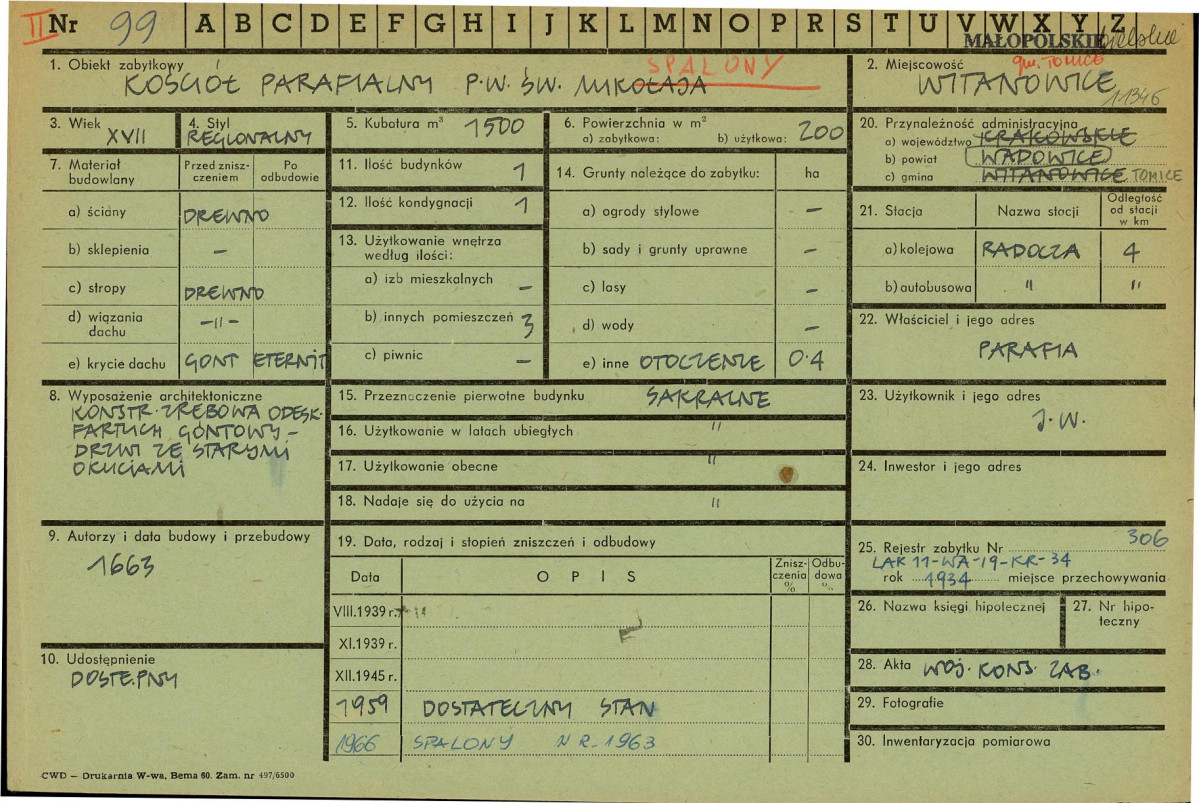 II Nr 99 A B C D E F G H I J K L M N O P R S T U V W X Y Z
MAŁOPOLSKIE
1. Obiekt zabytkowy SPALONY
KOŚCIÓŁ PARAFIALNY P.W. ŚW. MIKOŁAJA
2. Miejscowość gm. TOMICE
WITANOWICE
11346
3. Wiek XVII
4. Styl
REGIONALNY
5. Kubatura m³ 1500
6. Powierzchnia w m²
a) zabytkowa: b) użytkowa: 200
7. Materiał budowlany
Przed zniszczeniem
Po odbudowie
a) ściany DREWNO
b) sklepienia –
c) stropy DREWNO
d) wiązania dachu –"–
e) krycie dachu GONT ETERNIT
8. Wyposażenie architektoniczne
KONSTR. ZRĘBOWA ODESK.
FARTUCH GONTOWY –
DRZWI ZE STARYMI
OKUCIAMI
9. Autorzy i data budowy i przebudowy
1663
10. Udostępnienie
DOSTĘPNY
11. Ilość budynków 1
12. Ilość kondygnacji 1
13. Użytkowanie wnętrza
według ilości:
a) izb mieszkalnych –
b) innych pomieszczeń 3
c) piwnic –
14. Grunty należące do zabytku: ha
a) ogrody stylowe –
b) sady i grunty uprawne –
c) lasy –
d) wody –
e) inne OTOCZENIE 0.4
15. Przeznaczenie pierwotne budynku SAKRALNE
16. Użytkowanie w latach ubiegłych "
17. Użytkowanie obecne "
18. Nadaje się do użycia na "
19. Data, rodzaj i stopień zniszczeń i odbudowy
Data OPIS Zniszczenia % Odbudowa %
VIII.1939 r.
XI.1939 r.
XII.1945 r.
1959 DOSTATECZNY STAN
1966 SPALONY N R-1963
20. Przynależność administracyjna
a) województwo KRAKOWSKIE
b) powiat WADOWICE
c) gmina WITANOWICE TOMICE
21. Stacja Nazwa stacji Odległość od stacji w km
a) kolejowa RADOCZA 4
b) autobusowa " "
22. Właściciel i jego adres
PARAFIA
23. Użytkownik i jego adres
J.W.
24. Inwestor i jego adres
25. Rejestr zabytku Nr 306
LAK 11-WA-19-KR-34
rok 1934 miejsce przechowywania
26. Nazwa księgi hipotecznej
27. Nr hipoteczny
28. Akta WOJ. KONS. ZAB.
29. Fotografie
30. Inwentaryzacja pomiarowa
CWD – Drukarnia W-wa, Bema 60. Zam. nr 497/6500